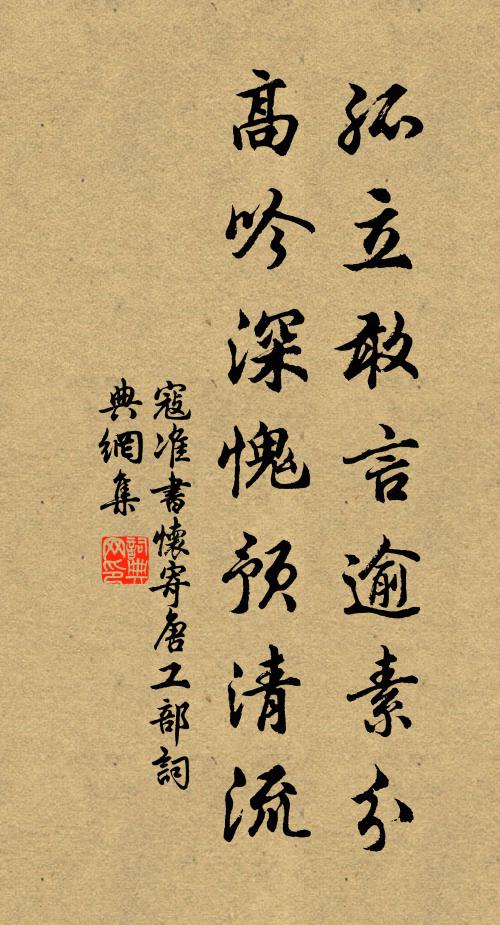 孤立敢言逾素分
高吟深愧预清流
寇准書懷寄唐工部詞
典網集
詞典网印